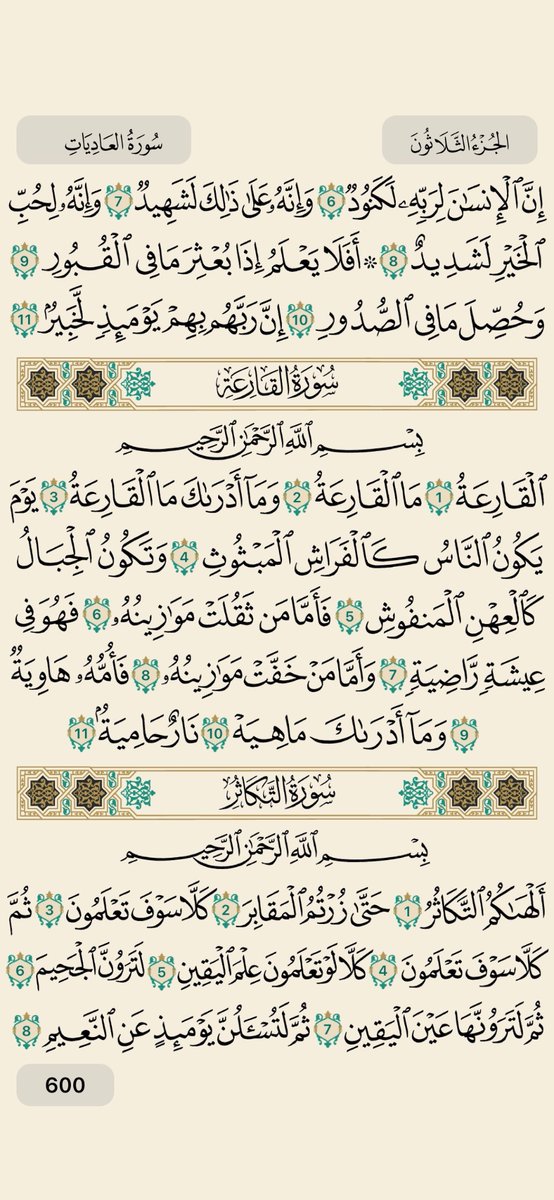 الجُزْءُ الثَّلَاثُونَ
سُورَةُ العَادِيَاتِ
إِنَّ ٱلْإِنسَٰنَ لِرَبِّهِۦ لَكَنُودٌ 6 وَإِنَّهُۥ عَلَىٰ ذَٰلِكَ لَشَهِيدٌ 7 وَإِنَّهُۥ لِحُبِّ
ٱلْخَيْرِ لَشَدِيدٌ 8 ۞ أَفَلَا يَعْلَمُ إِذَا بُعْثِرَ مَا فِى ٱلْقُبُورِ 9
وَحُصِّلَ مَا فِى ٱلصُّدُورِ 10 إِنَّ رَبَّهُم بِهِمْ يَوْمَئِذٍ لَّخَبِيرٌۢ 11
سُورَةُ القَارِعَةِ
بِسْمِ ٱللَّهِ ٱلرَّحْمَٰنِ ٱلرَّحِيمِ
ٱلْقَارِعَةُ 1 مَا ٱلْقَارِعَةُ 2 وَمَآ أَدْرَىٰكَ مَا ٱلْقَارِعَةُ 3 يَوْمَ
يَكُونُ ٱلنَّاسُ كَٱلْفَرَاشِ ٱلْمَبْثُوثِ 4 وَتَكُونُ ٱلْجِبَالُ
كَٱلْعِهْنِ ٱلْمَنفُوشِ 5 فَأَمَّا مَن ثَقُلَتْ مَوَٰزِينُهُۥ 6 فَهُوَ فِى
عِيشَةٍ رَّاضِيَةٍ 7 وَأَمَّا مَنْ خَفَّتْ مَوَٰزِينُهُۥ 8 فَأُمُّهُۥ هَاوِيَةٌ
9 وَمَآ أَدْرَىٰكَ مَا هِيَهْ 10 نَارٌ حَامِيَةٌۢ 11
سُورَةُ التَّكَاثُرِ
بِسْمِ ٱللَّهِ ٱلرَّحْمَٰنِ ٱلرَّحِيمِ
أَلْهَىٰكُمُ ٱلتَّكَاثُرُ 1 حَتَّىٰ زُرْتُمُ ٱلْمَقَابِرَ 2 كَلَّا سَوْفَ تَعْلَمُونَ 3 ثُمَّ
كَلَّا سَوْفَ تَعْلَمُونَ 4 كَلَّا لَوْ تَعْلَمُونَ عِلْمَ ٱلْيَقِينِ 5 لَتَرَوُنَّ ٱلْجَحِيمَ 6
ثُمَّ لَتَرَوُنَّهَا عَيْنَ ٱلْيَقِينِ 7 ثُمَّ لَتُسْـَٔلُنَّ يَوْمَئِذٍ عَنِ ٱلنَّعِيمِ 8
600